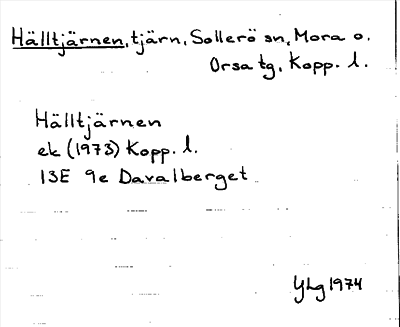 Hälltjärnen, tjärn, Sollerö sn, Mora o.
Orsa tg, Kopp. l.
Hälltjärnen
ek (1973) Kopp. l.
13E 9e Davalberget
YLg 1974